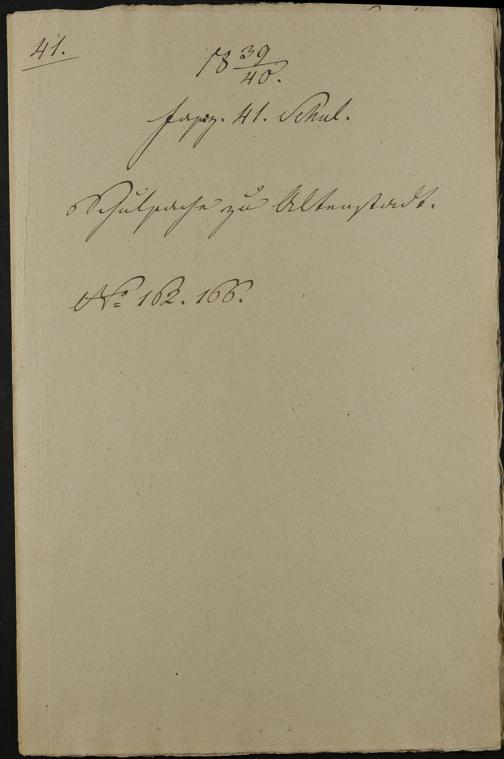 41.
18 39/40.
Fasz. 41. Schul.
Schulsache zu Altenstadt.
No 162. 166.